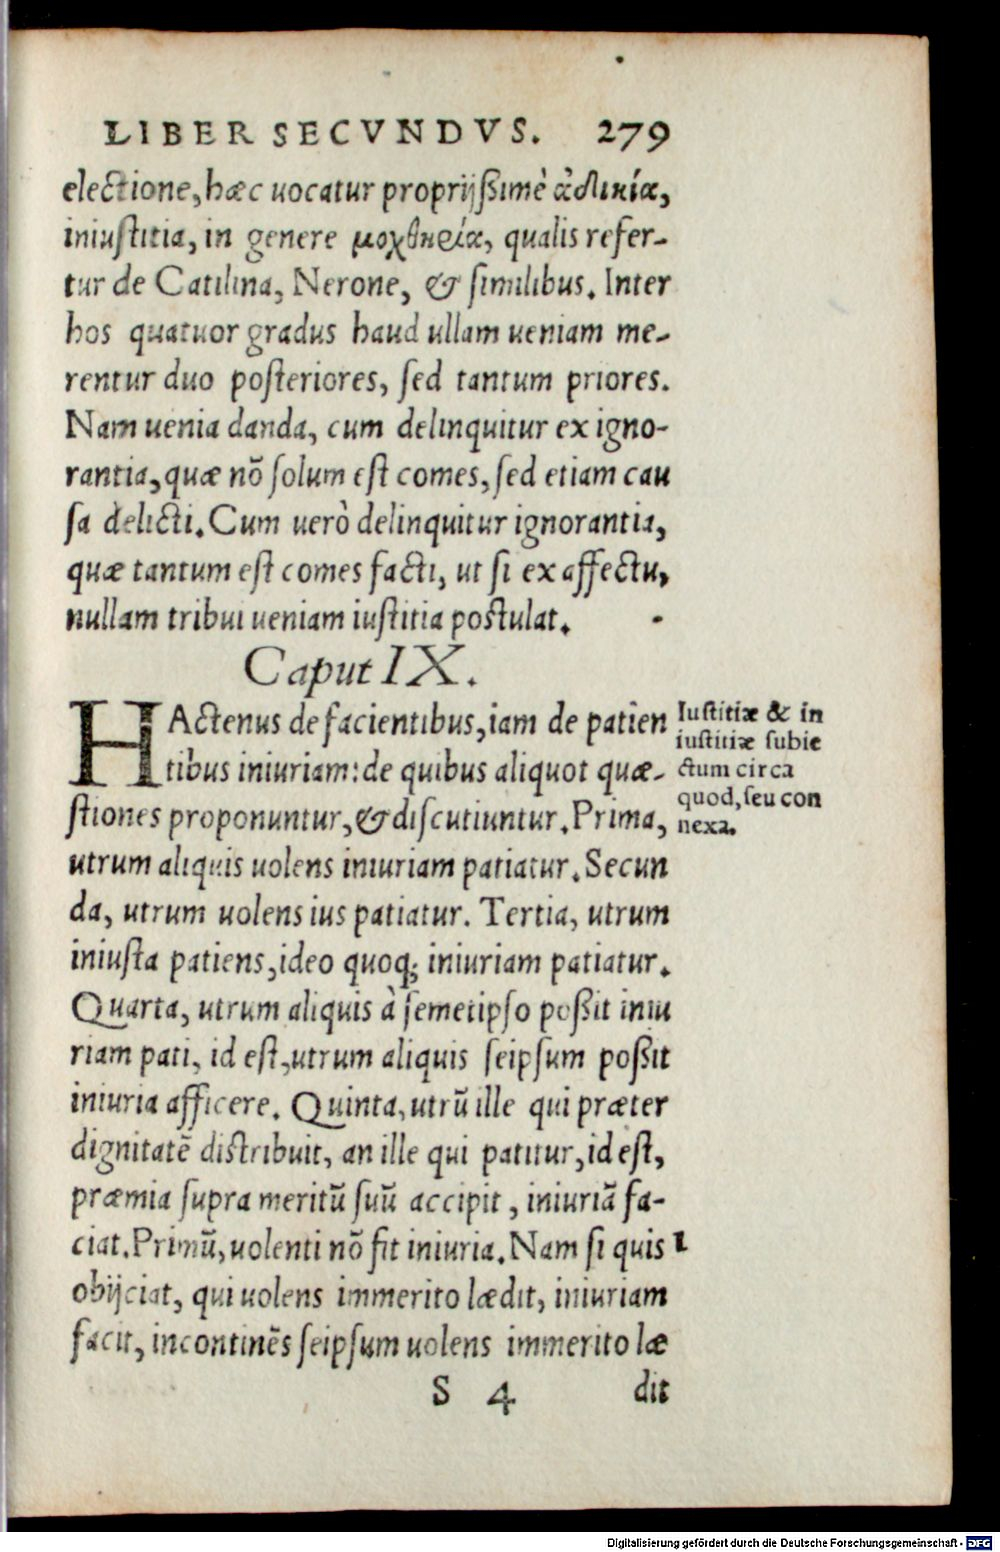 LIBER SECVNDVS. 279
electione, hæc uocatur proprijſſimè ἀδικία,
iniuſtitia, in genere μοχθηρία, qualis refer-
tur de Catilina, Nerone, & ſimilibus. Inter
hos quatuor gradus haud ullam ueniam me-
rentur duo poſteriores, ſed tantum priores.
Nam uenia danda, cum delinquitur ex igno-
rantia, quæ nõ ſolum eſt comes, ſed etiam cau
ſa delicti. Cum uerò delinquitur ignorantia,
quæ tantum eſt comes facti, ut ſi ex affectu,
nullam tribui ueniam iuſtitia poſtulat.
Caput IX.
HActenus de facientibus, iam de patien
tibus iniuriam: de quibus aliquot quæ-
ſtiones proponuntur, & diſcutiuntur. Prima,
utrum aliquis uolens iniuriam patiatur. Secun
da, utrum uolens ius patiatur. Tertia, utrum
iniuſta patiens, ideo quoq; iniuriam patiatur.
Quarta, utrum aliquis à ſemetipſo poſſit iniu
riam pati, id eſt, utrum aliquis ſeipſum poſſit
iniuria afficere. Quinta, utrũ ille qui præter
dignitatẽ diſtribuit, an ille qui patitur, id eſt,
præmia ſupra meritũ ſuũ accipit, iniuriã fa-
ciat. Primũ, uolenti nõ fit iniuria. Nam ſi quis 1
obijciat, qui uolens immerito lædit, iniuriam
facit, incontinẽs ſeipſum uolens immerito læ
S 4 dit
Iuſtitiæ & in
iuſtitiæ ſubie
ctum circa
quod, ſeu con
nexa.
Digitalisierung gefördert durch die Deutsche Forschungsgemeinschaft - DFG